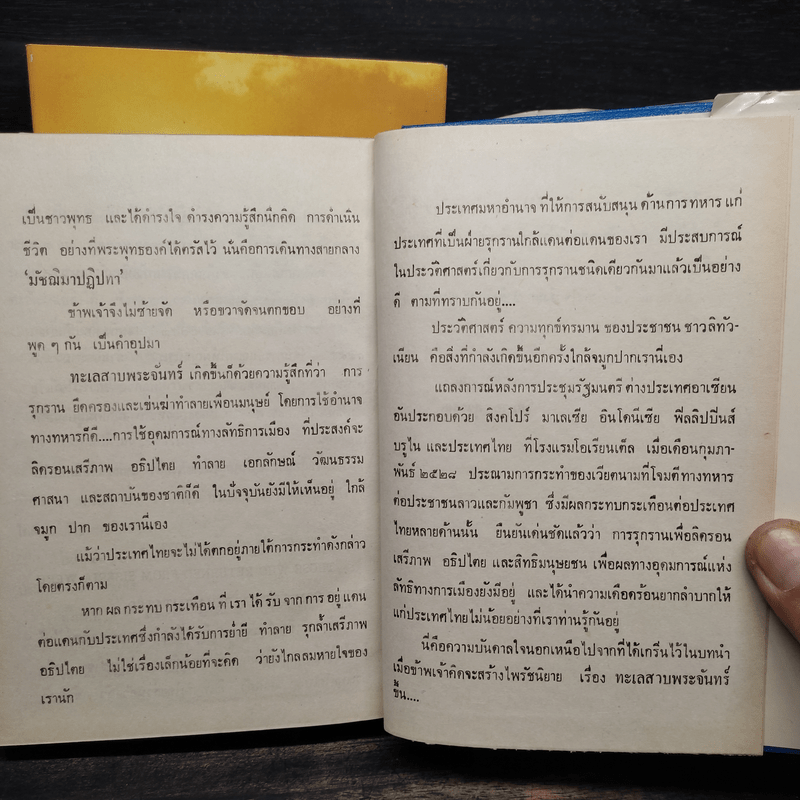 เป็นชาวพุทธ และได้ดำรงใจ ดำรงความรู้สึกนึกคิด การดำเนิน
ชีวิต อย่างที่พระพุทธองค์ได้ตรัสไว้ นั่นคือการเดินทางสายกลาง
'มัชฌิมาปฏิปทา'
ข้าพเจ้าจึงไม่ซ้ายจัด หรือขวาจัดจนตกขอบ อย่างที่
พูด ๆ กัน เป็นคำอุปมา
ทะเลสาบพระจันทร์ เกิดขึ้นก็ด้วยความรู้สึกที่ว่า การ
รุกราน ยึดครองและเข่นฆ่าทำลายเพื่อนมนุษย์ โดยการใช้อำนาจ
ทางทหารก็ดี....การใช้อุดมการณ์ทางลัทธิการเมือง ที่ประสงค์จะ
ลิดรอนเสรีภาพ อธิปไตย ทำลาย เอกลักษณ์ วัฒนธรรม
ศาสนา และสถาบันของชาติก็ดี ในปัจจุบันยังมีให้เห็นอยู่ ใกล้
จมูก ปาก ของเรานี่เอง
แม้ว่าประเทศไทยจะไม่ได้ตกอยู่ภายใต้การกระทำดังกล่าว
โดยตรงก็ตาม
หาก ผล กระทบ กระเทือน ที่ เรา ได้ รับ จาก การ อยู่ แดน
ต่อแดนกับประเทศซึ่งกำลังได้รับการย่ำยี ทำลาย รุกล้ำเสรีภาพ
อธิปไตย ไม่ใช่เรื่องเล็กน้อยที่จะคิด ว่ายังไกลลมหายใจของ
เรานัก
ประเทศมหาอำนาจ ที่ให้การสนับสนุน ด้านการทหาร แก่
ประเทศที่เป็นฝ่ายรุกรานใกล้แดนต่อแดนของเรา มีประสบการณ์
ในประวัติศาสตร์เกี่ยวกับการรุกรานชนิดเดียวกันมาแล้วเป็นอย่าง
ดี ตามที่ทราบกันอยู่....
ประวัติศาสตร์ ความทุกข์ทรมาน ของประชาชน ชาวลิทัว-
เนียน คือสิ่งที่กำลังเกิดขึ้นอีกครั้งใกล้จมูกปากเรานี่เอง
แถลงการณ์หลังการประชุมรัฐมนตรี ต่างประเทศอาเซียน
อันประกอบด้วย สิงคโปร์ มาเลเซีย อินโดนีเซีย ฟิลลิปปินส์
บรูไน และประเทศไทย ที่โรงแรมโอเรียนเต็ล เมื่อเดือนกุมภา-
พันธ์ ๒๕๒๘ ประณามการกระทำของเวียดนามที่โจมตีทางทหาร
ต่อประชาชนลาวและกัมพูชา ซึ่งมีผลกระทบกระเทือนต่อประเทศ
ไทยหลายด้านนั้น ยืนยันเด่นชัดแล้วว่า การรุกรานเพื่อลิดรอน
เสรีภาพ อธิปไตย และสิทธิมนุษยชน เพื่อผลทางอุดมการณ์แห่ง
ลัทธิทางการเมืองยังมีอยู่ และได้นำความเดือดร้อนยากลำบากให้
แก่ประเทศไทยไม่น้อยอย่างที่เราท่านรู้กันอยู่
นี่คือความบันดาลใจนอกเหนือไปจากที่ได้เกริ่นไว้ในบทนำ
เมื่อข้าพเจ้าคิดจะสร้างไพรัชนิยาย เรื่อง ทะเลสาบพระจันทร์
ขึ้น....